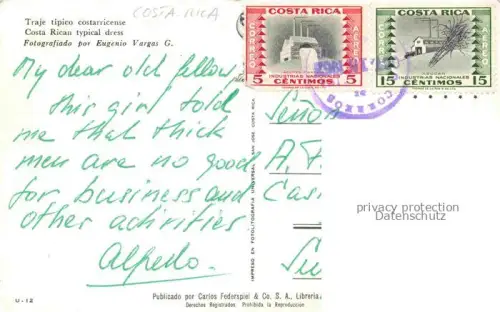 Traje típico costarricense
Costa Rican typical dress
Fotografiado por Eugenio Vargas G.
COSTA RICA
My dear old fellow,
this girl told
me that thick
men are no good
for business and
other activities
Alfredo.
U-12
Publicado por Carlos Federspiel & Co. S. A., Librería
Derechos Registrados Prohibida la Reproducción
IMPRESO EN FOTOLITOGRAFIA UNIVERSAL - SAN JOSE, COSTA RICA
COSTA RICA
CORREO
AEREO
5 INDUSTRIAS NACIONALES 5
CENTIMOS
COSTA RICA
CORREO
AEREO
15 INDUSTRIAS NACIONALES 15
CENTIMOS
CORREOS
Señor
A. F.
Cas
privacy protection
Datenschutz